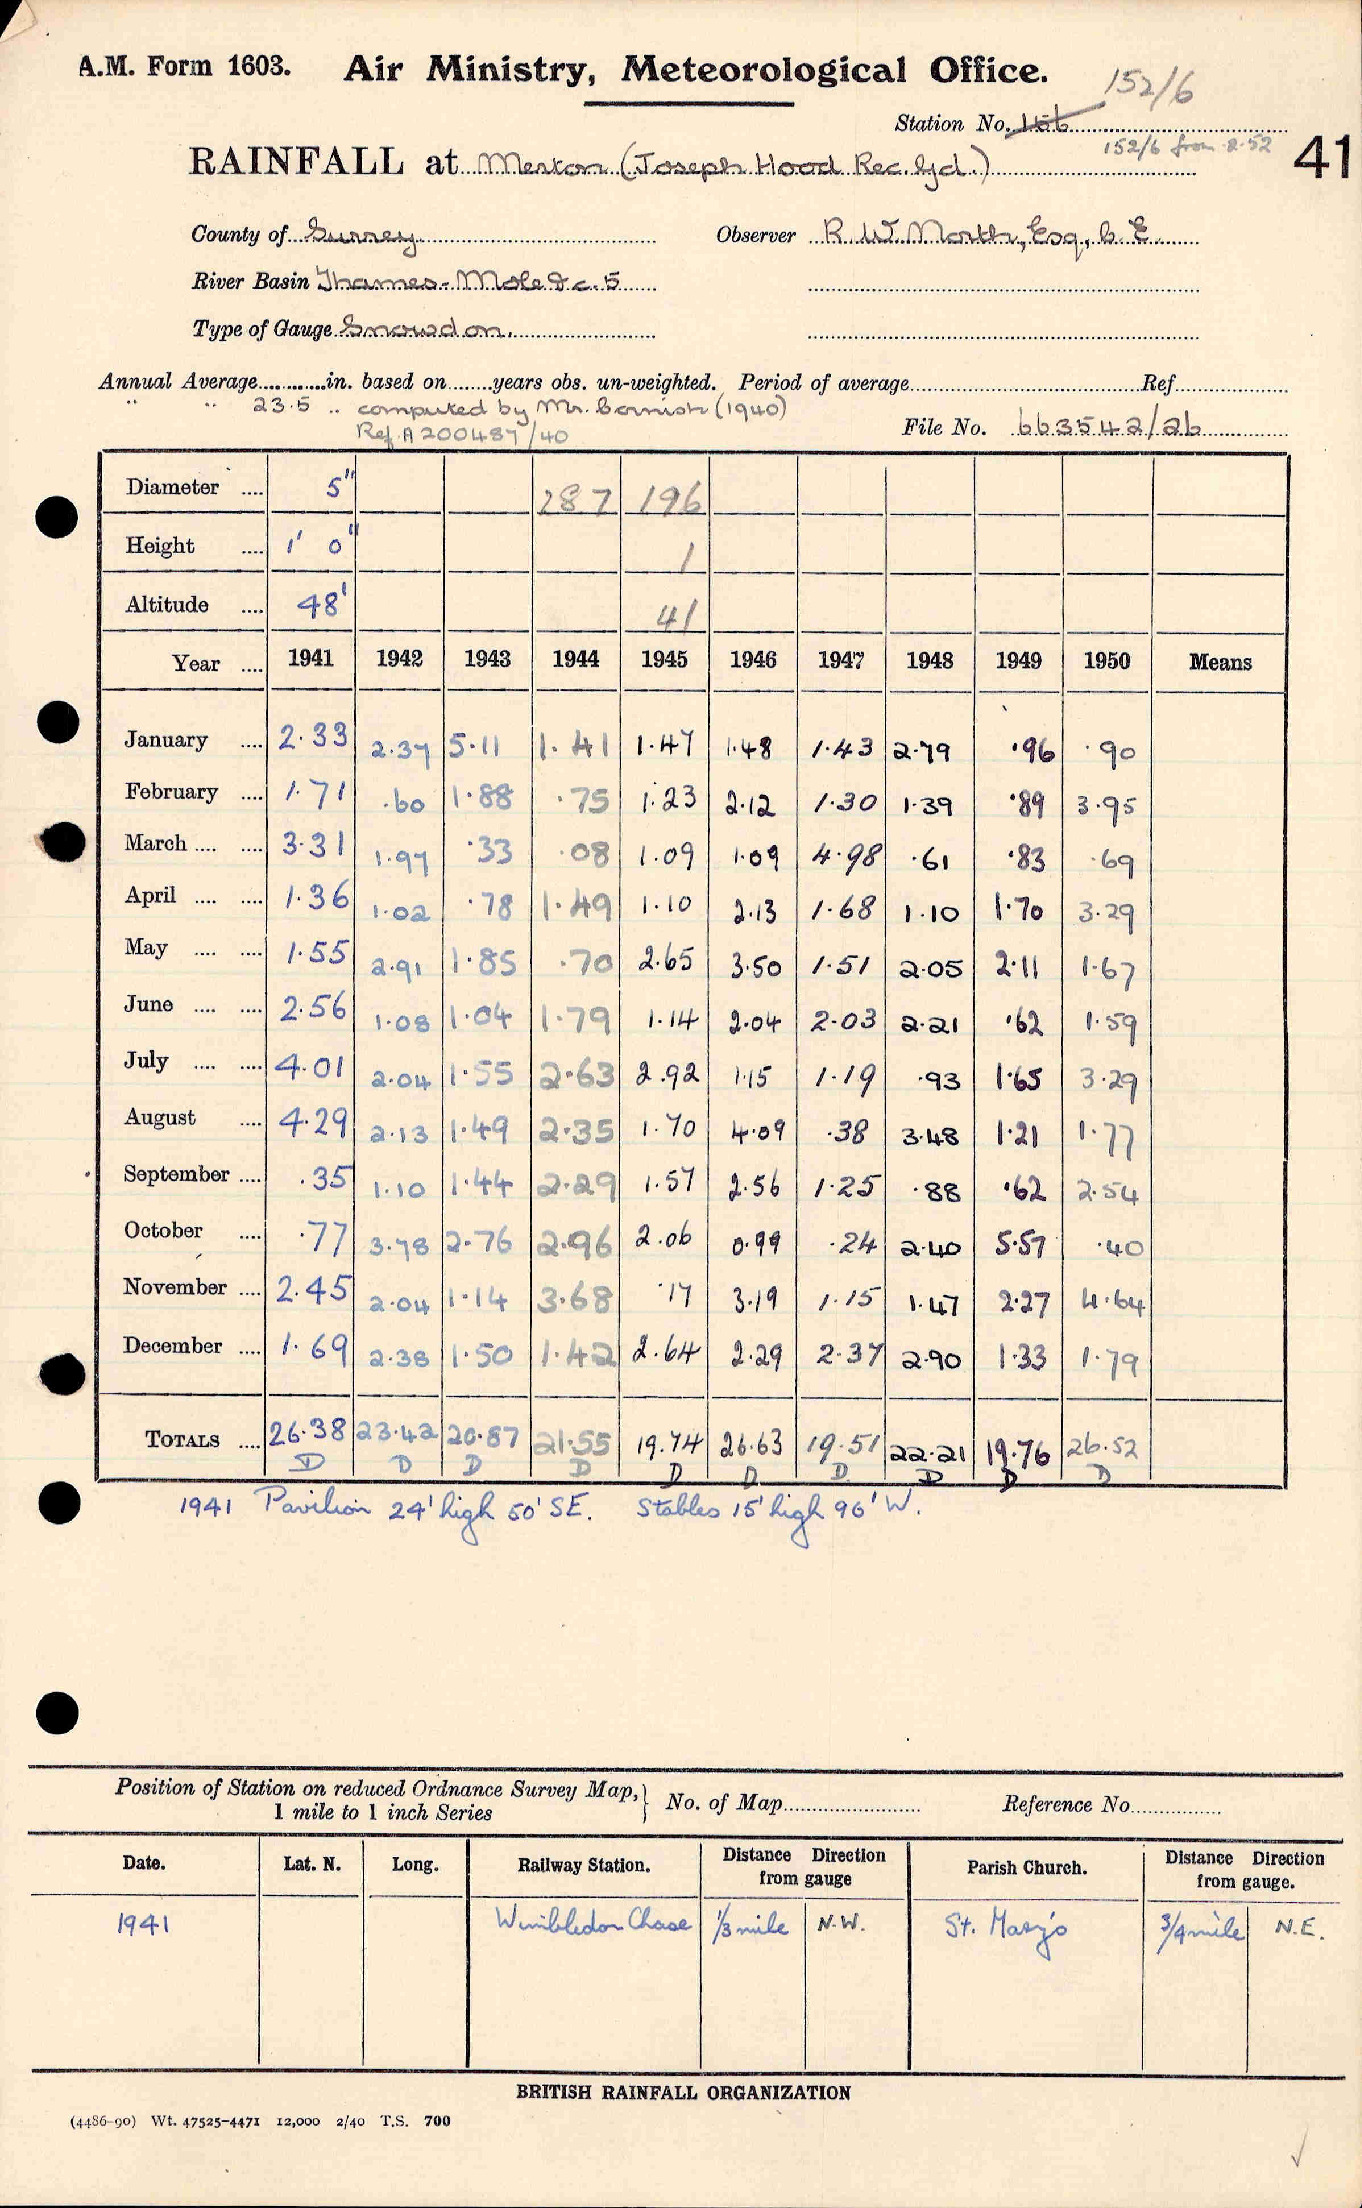 A.M. Form 1603. Air Ministry, Meteorological Office.
152/6
Station No. 156
152/6 from 2.52
41
RAINFALL at Merton (Joseph Hood Rec. Gd.)
County of Surrey Observer R. W. North, Esq., C.E.
River Basin Thames - Mole &c. 5
Type of Gauge Snowdon.
Annual Average............in. based on........years obs. un-weighted. Period of average.................... Ref..................
" " 23.5 " computed by Mr. Cornish (1940)
Ref. A200487/40
File No. 663542/26
Diameter .... 5" 287 196
Height .... 1' 0" 1
Altitude .... 48' 41
Year .... 1941 1942 1943 1944 1945 1946 1947 1948 1949 1950 Means
January .... 2.33 2.37 5.11 1.41 1.47 1.48 1.43 2.79 .96 .90
February .... 1.71 .60 1.88 .75 1.23 2.12 1.30 1.39 .89 3.95
March .... .... 3.31 1.97 .33 .08 1.09 1.09 4.98 .61 .83 .69
April .... .... 1.36 1.02 .78 1.49 1.10 2.13 1.68 1.10 1.70 3.29
May .... .... 1.55 2.91 1.85 .70 2.65 3.50 1.51 2.05 2.11 1.67
June .... .... 2.56 1.08 1.04 1.79 1.14 2.04 2.03 2.21 .62 1.59
July .... .... 4.01 2.04 1.55 2.63 2.92 1.15 1.19 .93 1.65 3.29
August .... 4.29 2.13 1.49 2.35 1.70 4.09 .38 3.48 1.21 1.77
September .... .35 1.10 1.44 2.29 1.57 2.56 1.25 .88 .62 2.54
October .... .77 3.78 2.76 2.96 2.06 0.99 .24 2.40 5.57 .40
November .... 2.45 2.04 1.14 3.68 .17 3.19 1.15 1.47 2.27 4.64
December .... 1.69 2.38 1.50 1.42 2.64 2.29 2.37 2.90 1.33 1.79
TOTALS .... 26.38 23.42 20.87 21.55 19.74 26.63 19.51 22.21 19.76 26.52
D D D D D D D D D D
1941 Pavilion 24' high 50' SE. Stables 15' high 96' W.
Position of Station on reduced Ordnance Survey Map, } No. of Map.................... Reference No...............
1 mile to 1 inch Series
Date. Lat. N. Long. Railway Station. Distance from gauge Direction Parish Church. Distance from gauge. Direction
1941 Wimbledon Chase 1/3 mile N.W. St. Mary's 3/4 mile N.E.
BRITISH RAINFALL ORGANIZATION
(4486-90) Wt. 47525-4471 12,000 2/40 T.S. 700